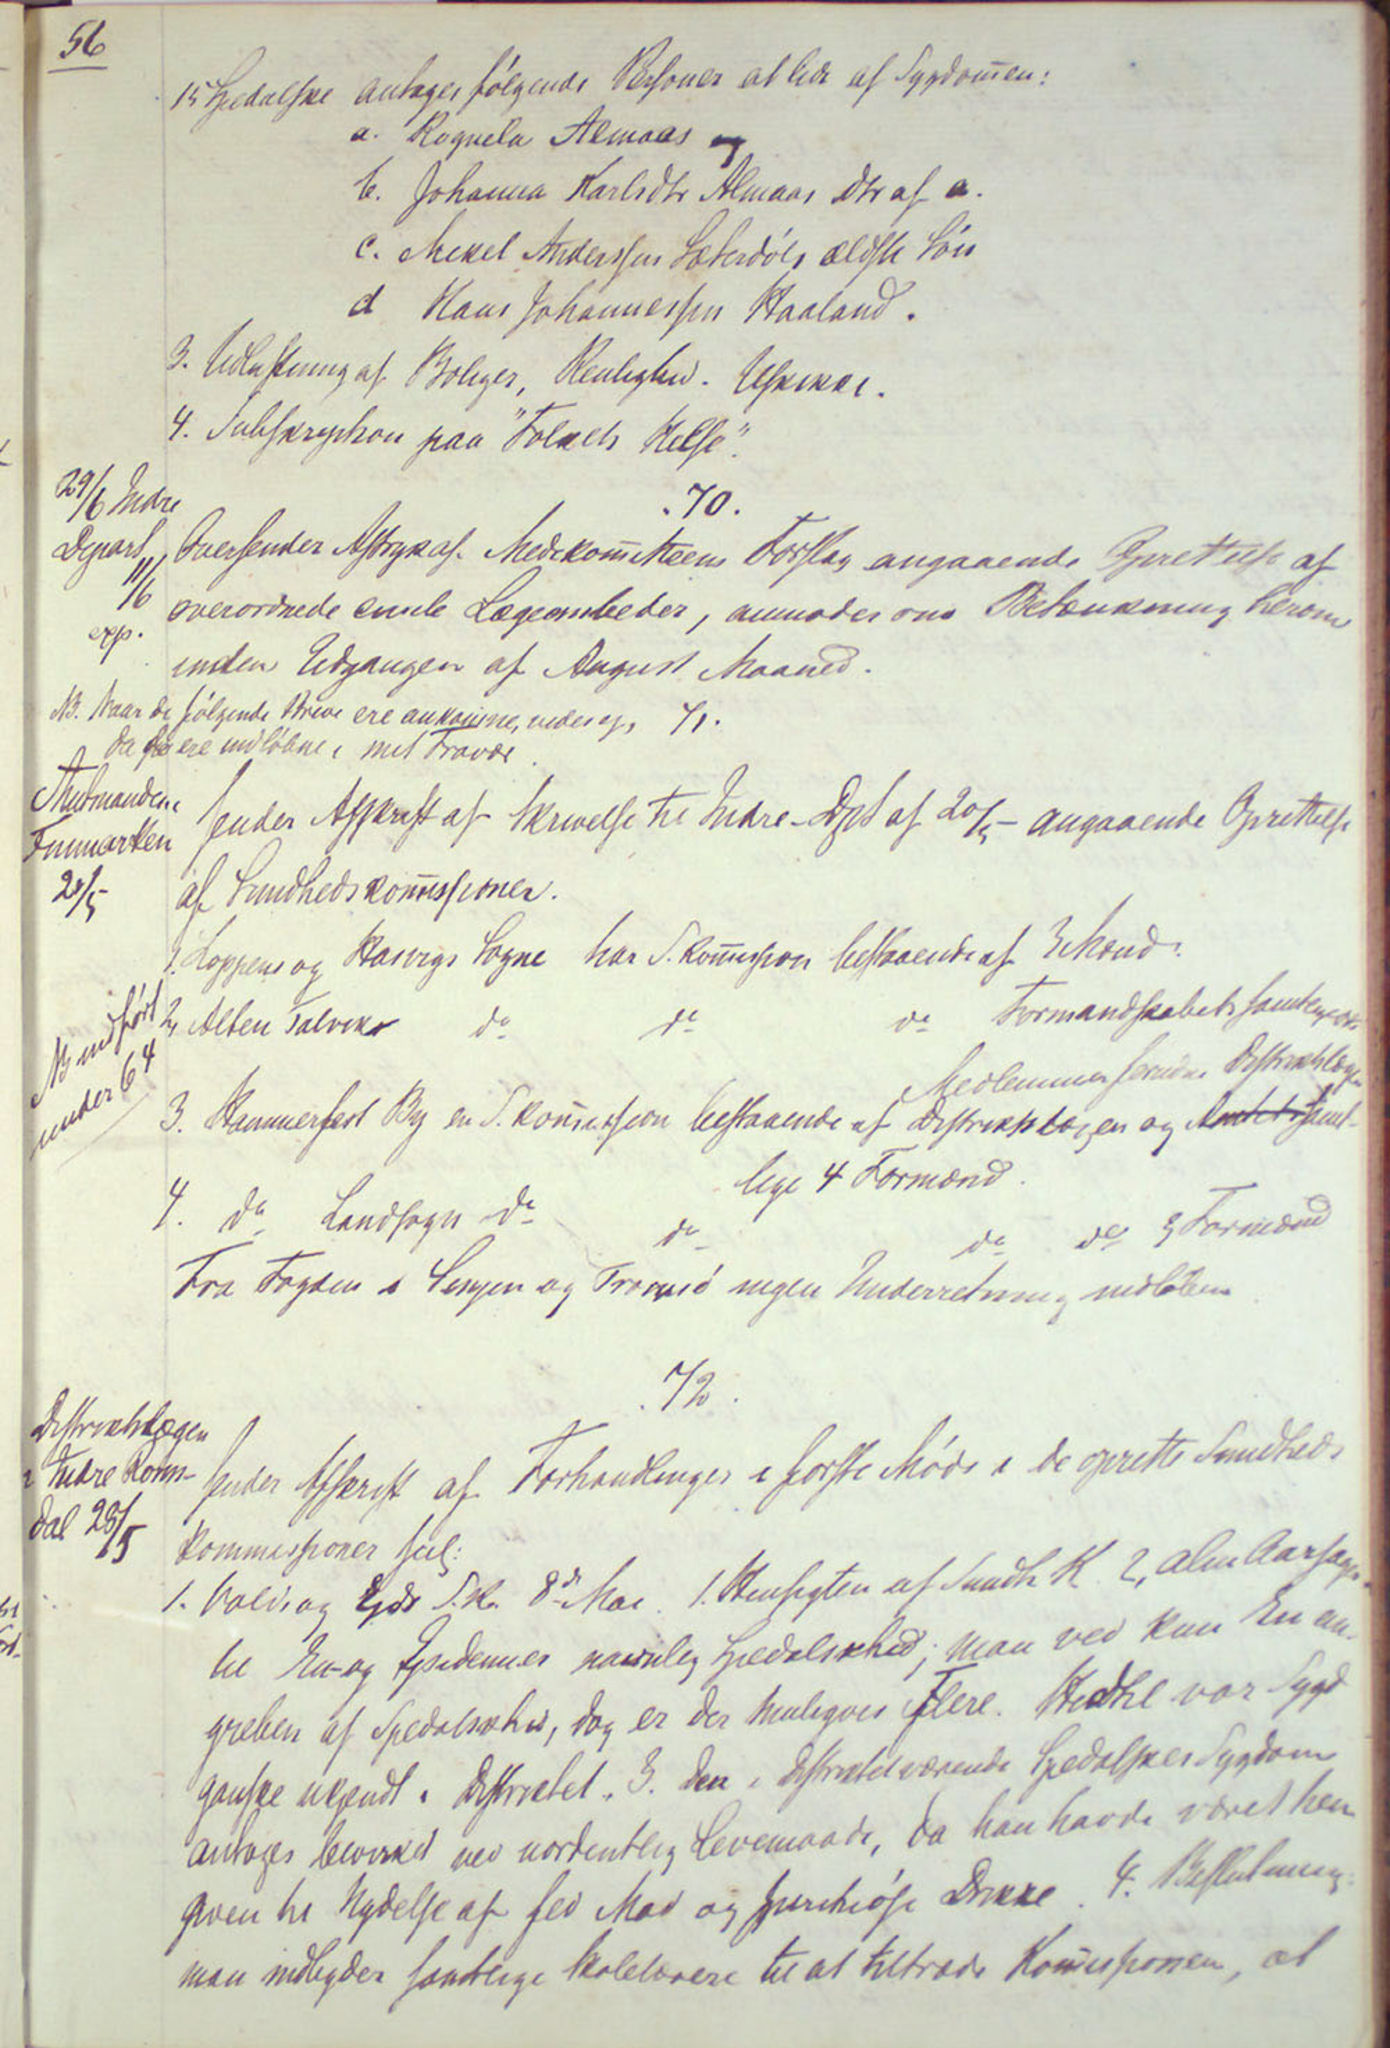 56
15 Spedalske antages følgende Personer at lide af Sygdom̄en:
a. Rognela Almaas og
b. Johanna Karlsdtr Almaas Dtr af a.
c. Mikel Anderssen Sæterdöls ældste Sön
d Hans Johannessen Haaland.
3. Udluftning af Boliger, Renlighed.
4. Subskription paa "Folkets Helse".
.70.
29/6 Indre
Depart
11/6
exp.
Oversender Aftryk af Medkom̄itteens Forslag angaaende Oprettelse af
overordnede civile Lægeembeder, anmoder om Betænkning herom
inden Udgangen af August Maaned.
NB. Naar de følgende Breve ere ankomne, vides ej, 71.
da de ere indløbne i mit Fravær.
Amtmanden i
Finmarken
28/5
sender Afskrift af Skrivelse til Indre-Dpt af 20/5 - angaaende Oprettelse
af Sundhedskom̄issioner.
NB indført
under 64
1. Loppens og Hasvigs Sogne har S.kom̄ission bestaaende af 3 Mænd.
2, Alten Talvik do do do Formandskabets samtlige
Medlemmer foruden Distriktslægen
3. Hammerfest By en S.kom̄ission bestaaende af Distriktslægen og samt-
lige 4 Formænd.
4. do Landsogn do do do do 3 Formænd
Fra Fogden i Senjen og Tromsö ingen Underretning indløben
.72.
Distriktslægen
i Indre Roms-
dal 28/5
sender Afskrift af Forhandlinger i første Møde i de oprettede Sundheds
kommissioner følg:
1. Vold og Eids S.K. 8de Mai. 1. Hensigten af Sundh K. 2, alm Aarsager
til En- og Epidemier navnlig Spedalskhed; man ved kun En an-
greben af Spedalskhed, dog er der muligvis Flere. Hidtil var Sygd
ganske ukjendt i Distriktet. 3. Den i Distriktet værende Spedalskes Sygdom
antages bevirket ved uordentlig Levemaade, da han havde været hen
given til Nydelse af fed Mad og spirituøse Drikke. 4. Beslutning:
man indbyder samtlige Skolelærere til at tiltræde Kom̄issionen, at